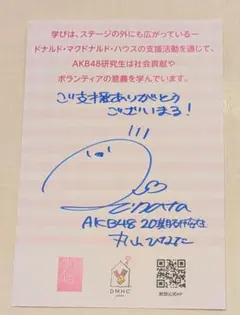 学びは、ステージの外にも広がっているー
ドナルド・マクドナルド・ハウスの支援活動を通じて、
AKB48研究生は社会貢献や
ボランティアの意義を学んでいます。
ご支援ありがとう
ございいまる!
AKB48 20期研究生
丸山ひなた
DMHC